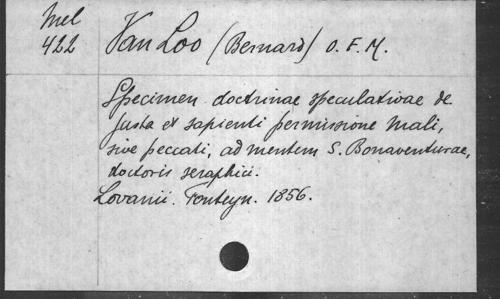 Mel
422
Van Loo (Bernard) O. F. M.
Specimen doctrinae speculativae de
justa et sapienti permissione mali,
sive peccati, ad mentem S. Bonaventurae,
doctoris seraphici.
Lovanii. Fonteyn. 1856.